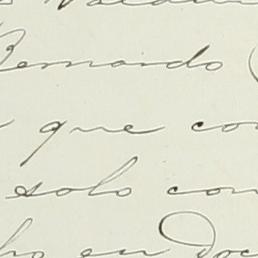 Bernardo
que co
solo con
en doc